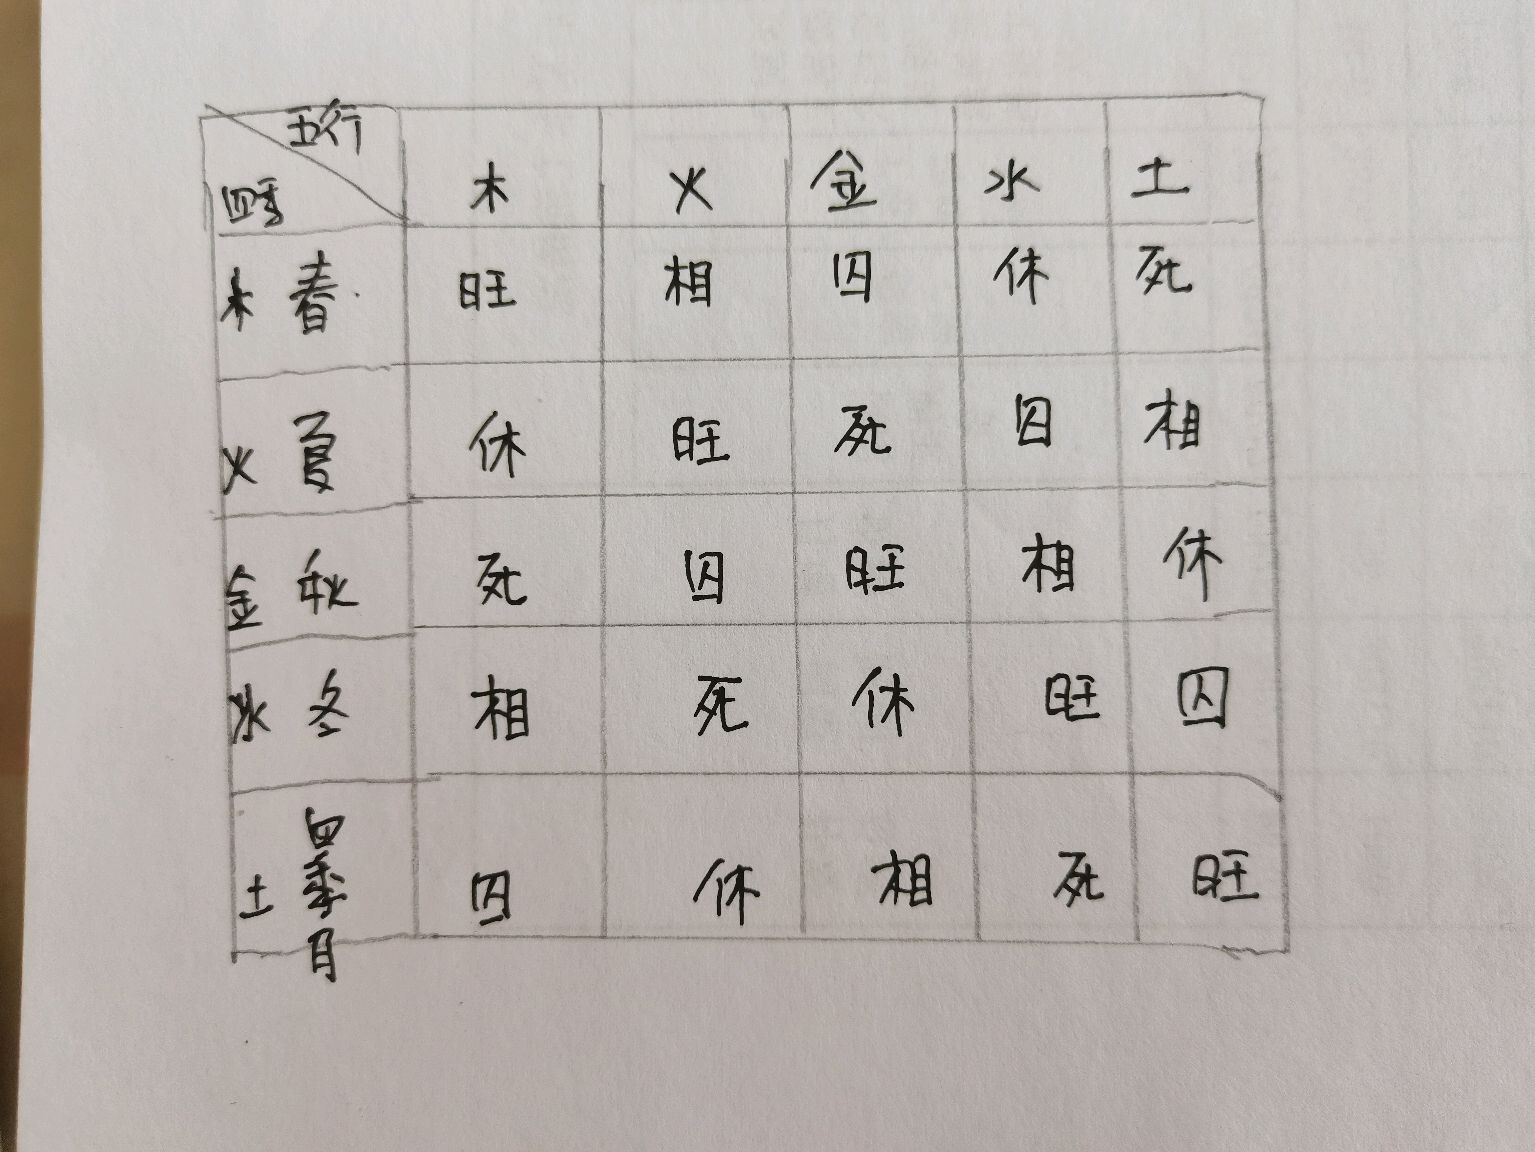 五行
四季 木 火 金 水 土
木 春 旺 相 囚 休 死
火 夏 休 旺 死 囚 相
金 秋 死 囚 旺 相 休
水 冬 相 死 休 旺 囚
土 四季月 囚 休 相 死 旺